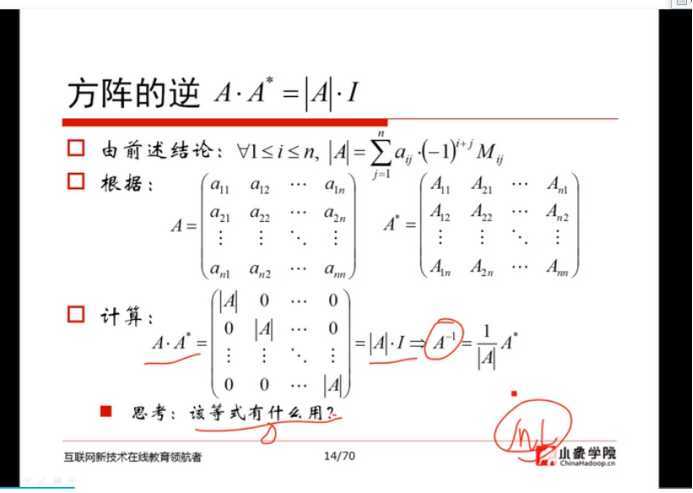 方阵的逆 A·A* = |A|·I
由前述结论：∀1≤i≤n, |A| = ∑_{j=1}^{n} a_{ij}·(−1)^{i+j} M_{ij}
根据：
A = ( a_{11} a_{12} ⋯ a_{1n}
a_{21} a_{22} ⋯ a_{2n}
⋮ ⋮ ⋱ ⋮
a_{n1} a_{n2} ⋯ a_{nn} )
A* = ( A_{11} A_{21} ⋯ A_{n1}
A_{12} A_{22} ⋯ A_{n2}
⋮ ⋮ ⋱ ⋮
A_{1n} A_{2n} ⋯ A_{nn} )
计算：
A·A* = ( |A| 0 ⋯ 0
0 |A| ⋯ 0
⋮ ⋮ ⋱ ⋮
0 0 ⋯ |A| ) = |A|·I ⇒ A^{−1} = \frac{1}{|A|} A*
思考：该等式有什么用？
互联网新技术在线教育领航者
14/70
小象学院
ChinaHadoop.cn